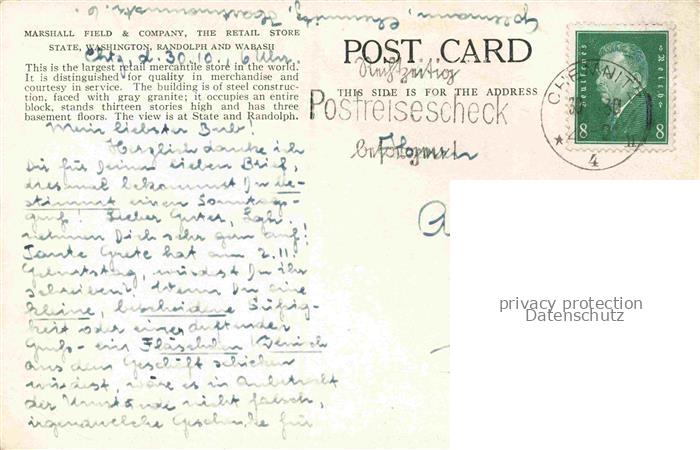 MARSHALL FIELD & COMPANY, THE RETAIL STORE
STATE, WASHINGTON, RANDOLPH AND WABASH
This is the largest retail mercantile store in the world.
It is distinguished for quality in merchandise and
courtesy in service. The building is of steel construc-
tion, faced with gray granite; it occupies an entire
block, stands thirteen stories high and has three
basement floors. The view is at State and Randolph.
Chtz, d. 30.10., 6 Uhr
Mein liebster Bub!
Herzlich danke ich
Dir für Deinen lieben Brief,
diesmal bekommst Du be-
stimmt einen Sonntags-
gruß! Lieber Guter,
nehmen Dich sehr gern auf!
Tante Grete hat am 2.11.
Geburtstag, würdest Du ihr
schreiben? Wenn Du eine
kleine, bescheidene Süßig-
keit oder einen duftenden
Gruß - ein Fläschchen
aus dem Geschäft schicken
würdest, wäre es in Anbetracht
der Umstände nicht falsch,
irgendwelche Geschenke für
POST CARD
THIS SIDE IS FOR THE ADDRESS
Rechtzeitig
Postreisescheck
besorgen!
Herrn
CHEMNITZ
4
Deutsches Reich
8 8
privacy protection
Datenschutz